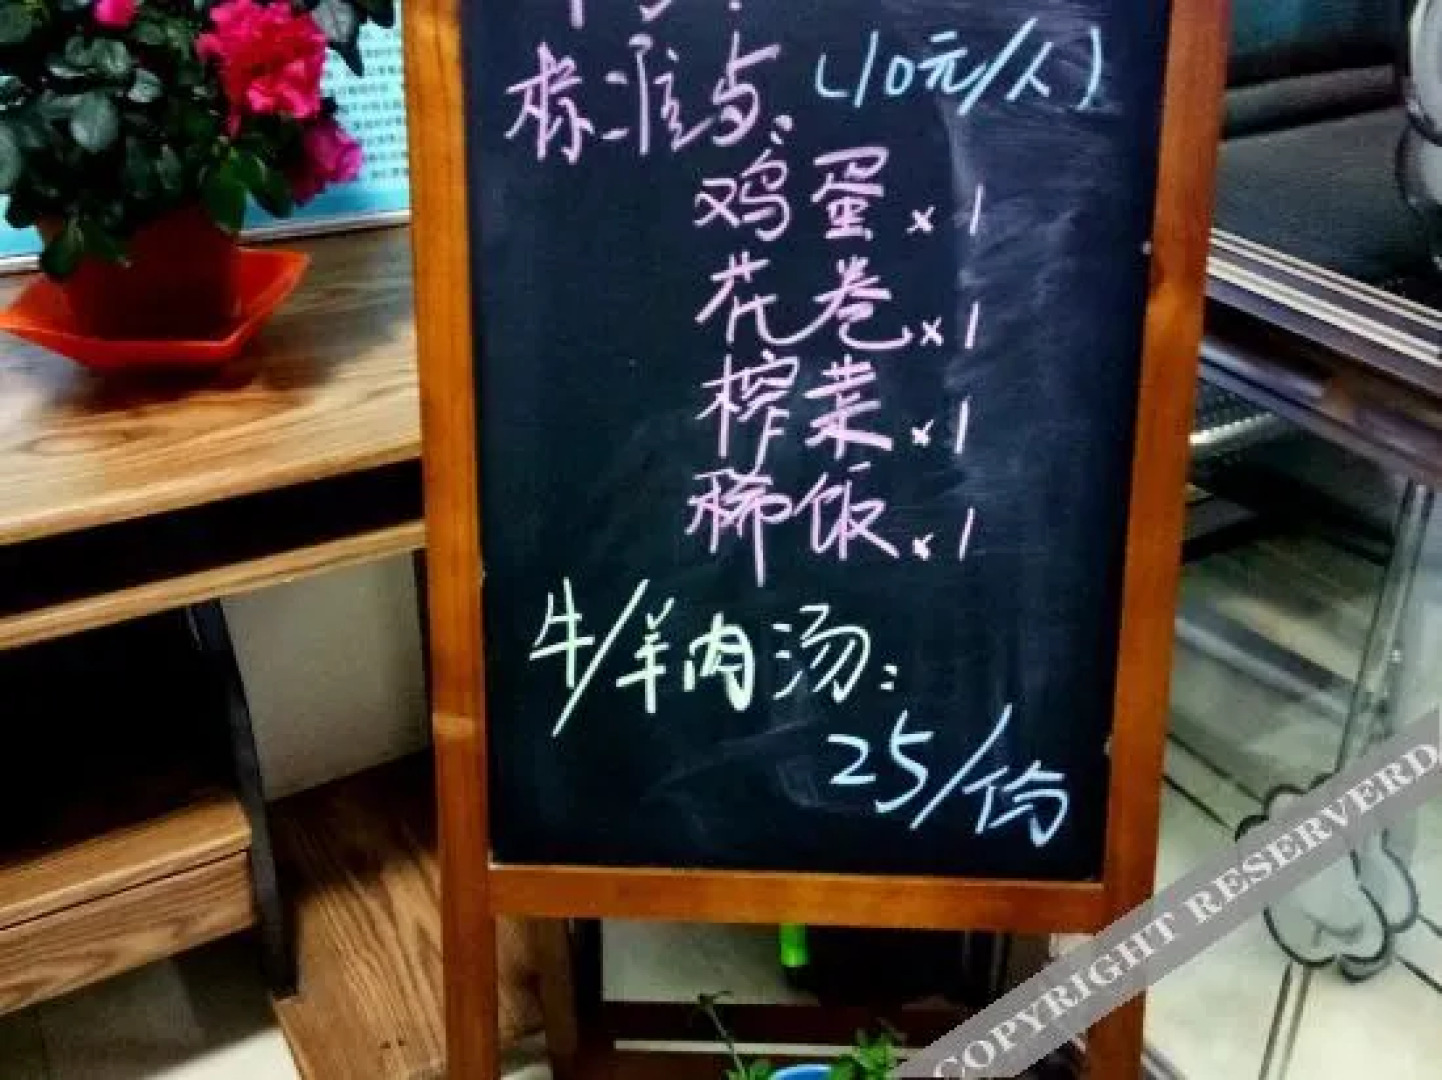 标准为:(10元/人)
鸡蛋×1
花卷×1
榨菜×1
稀饭×1
牛/羊肉汤:
25/份
COPYRIGHT RESERVERD